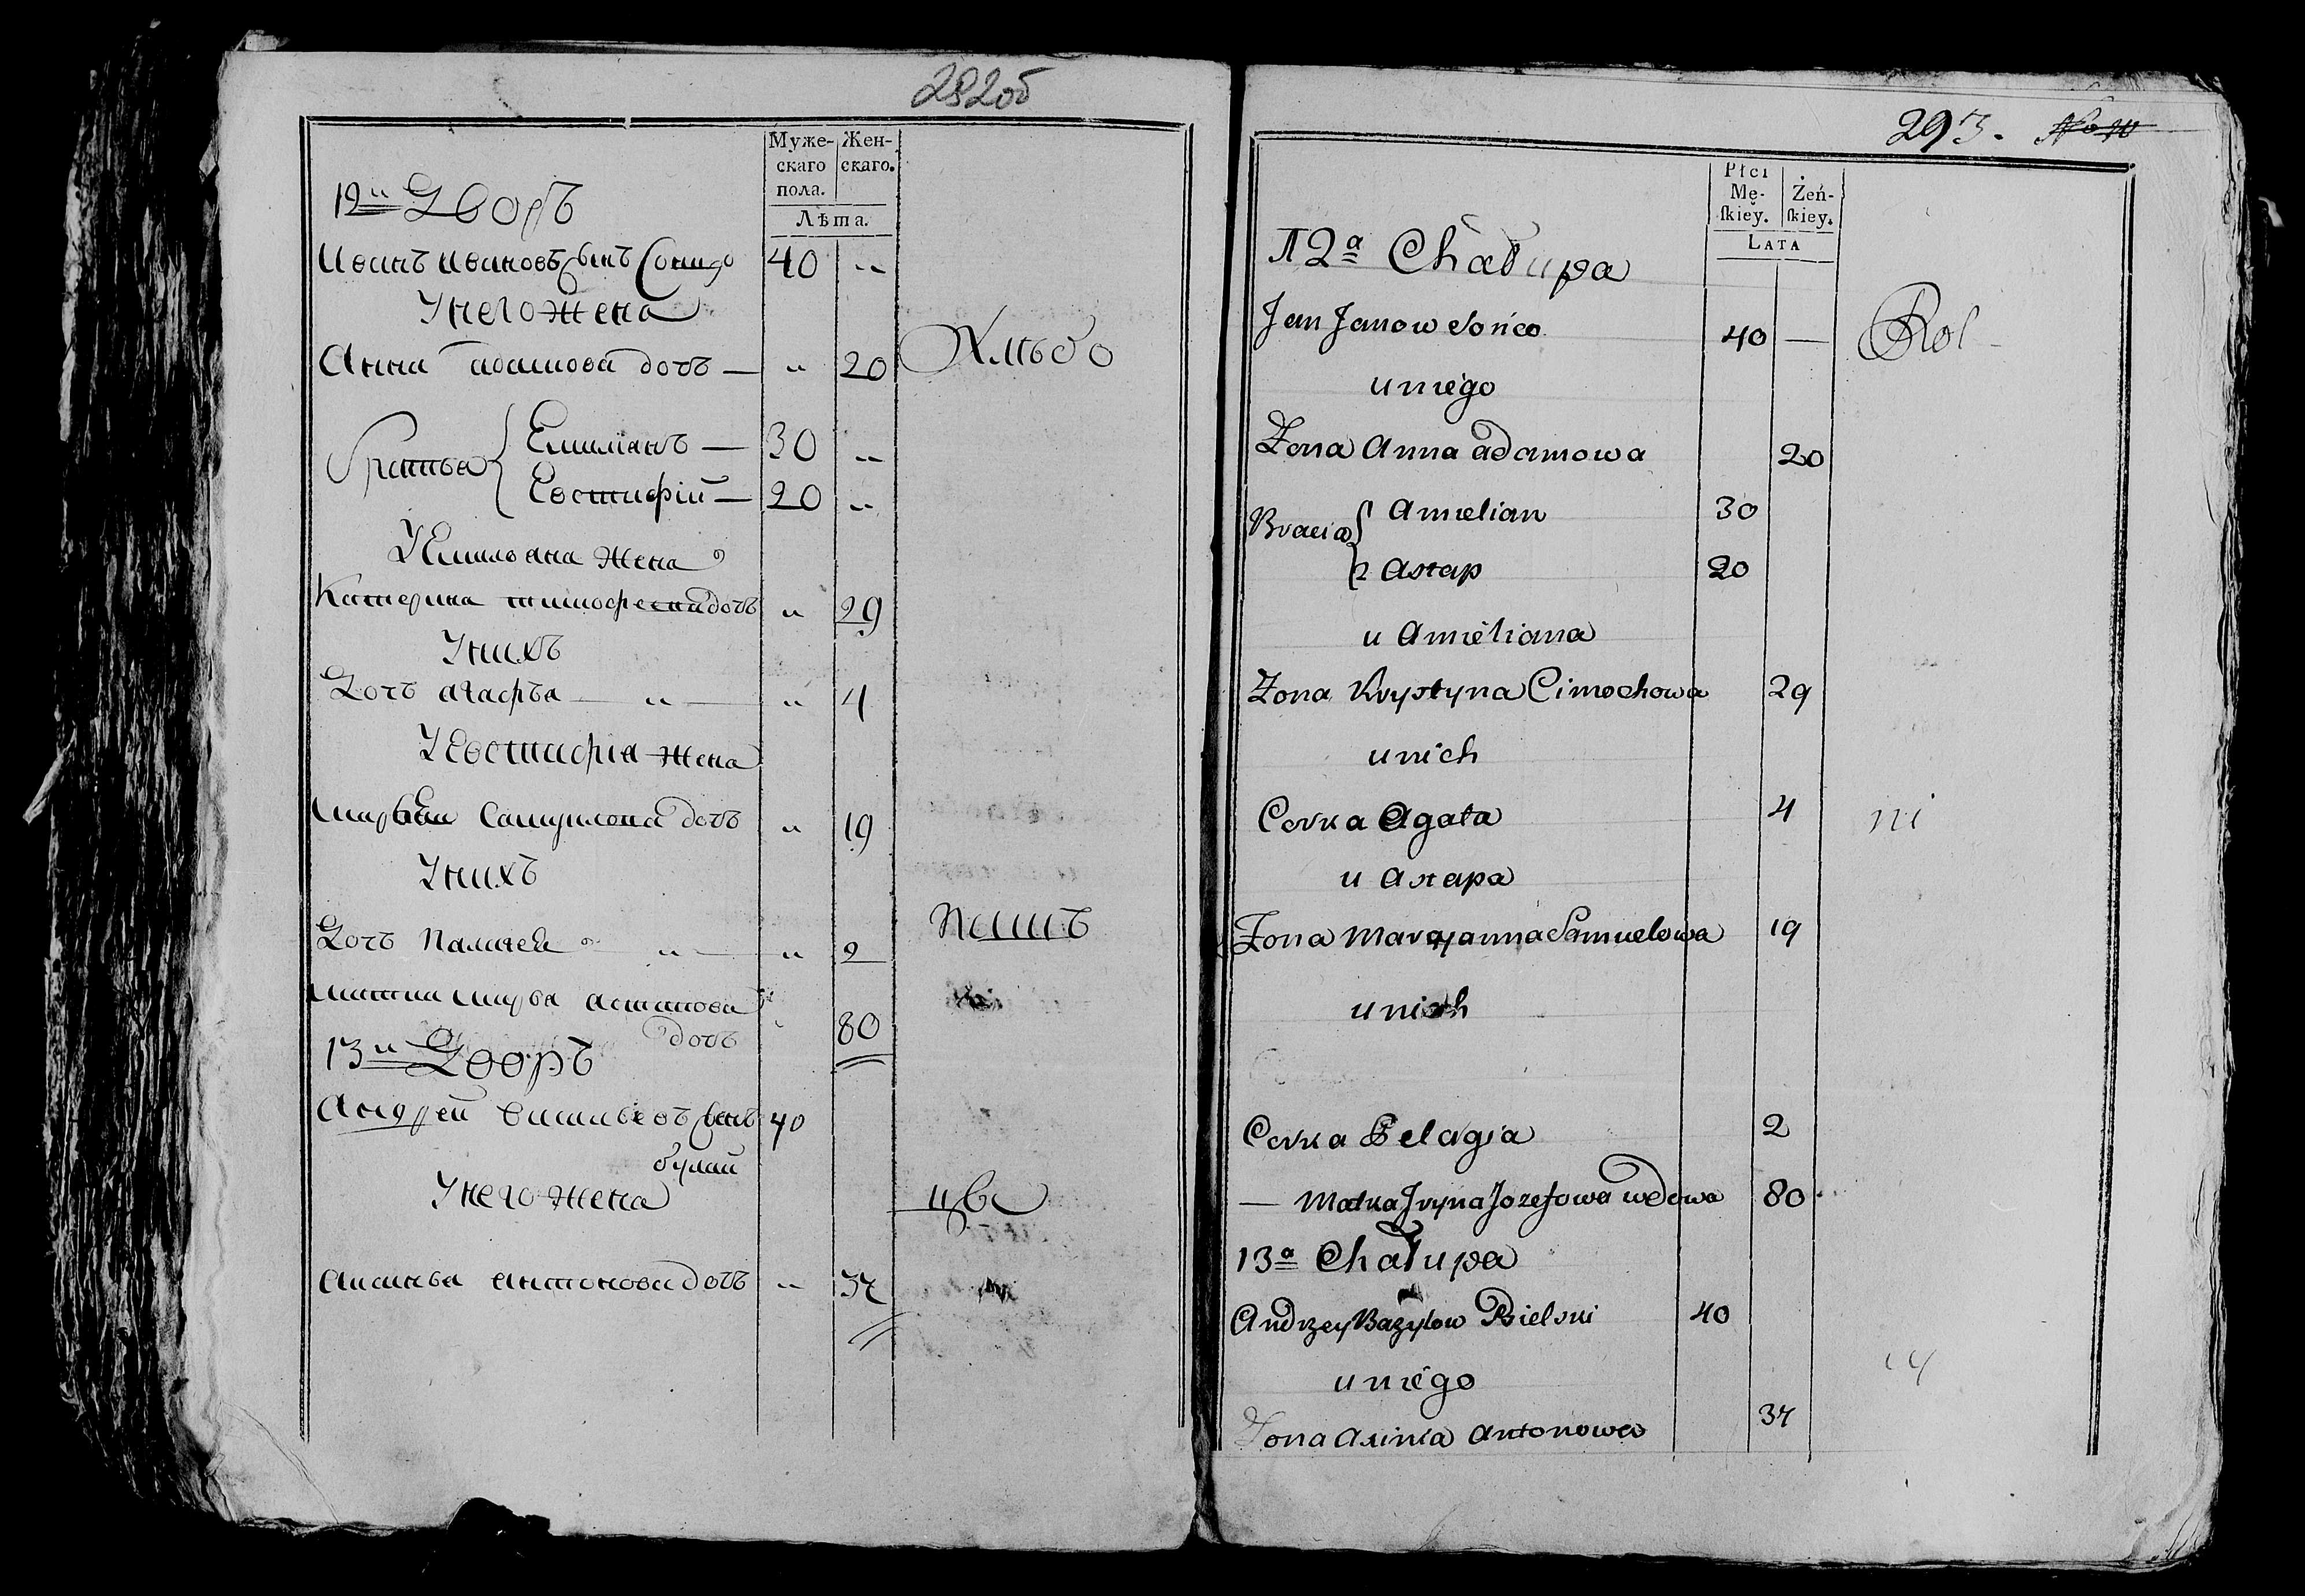 292об
Муже-
скаго
пола.
Жен-
скаго.
Лѣта.
12й Дворъ
Иванъ Ивановъ Сынъ 40 "
У него жена
Анна адамова дочь — " 20
Хлѣбо
братья Емилiанъ — 30 "
Евстифiй — 20 "
У Емильяна жена
Катерина тимофеева дочь " 29
У нихъ
Дочь агафья — " — " 4
У Евстифiя жена
Самуилова дочь " 19
У нихъ
Дочь Палагея " — " 2
пашъ
80
дочь
13й Дворъ
Андрей Васильевъ Сынъ 40
У него жена
цы
антонова дочь " 37
293.
Płci
Mę-
skiey.
Żeń-
skiey.
Lata
12a Chałupa
Jan Janow Sońco 40 —
Rol-
u niego
Żona Anna adamowa 20
Bracia Amelian 30
2 Astap 20
u Ameliana
Żona Krystyna Cimochowa 29
u nich
Corka Agata 4
ni
u Astapa
Żona Maryanna Samuelowa 19
u nich
Corka Pelagia 2
— Matka Jryna Jozefowa wdowa 80
13a Chałupa
Andrzey Bazylow Bielski 40
u niego
cy
Żona Axinia Antonowa 37